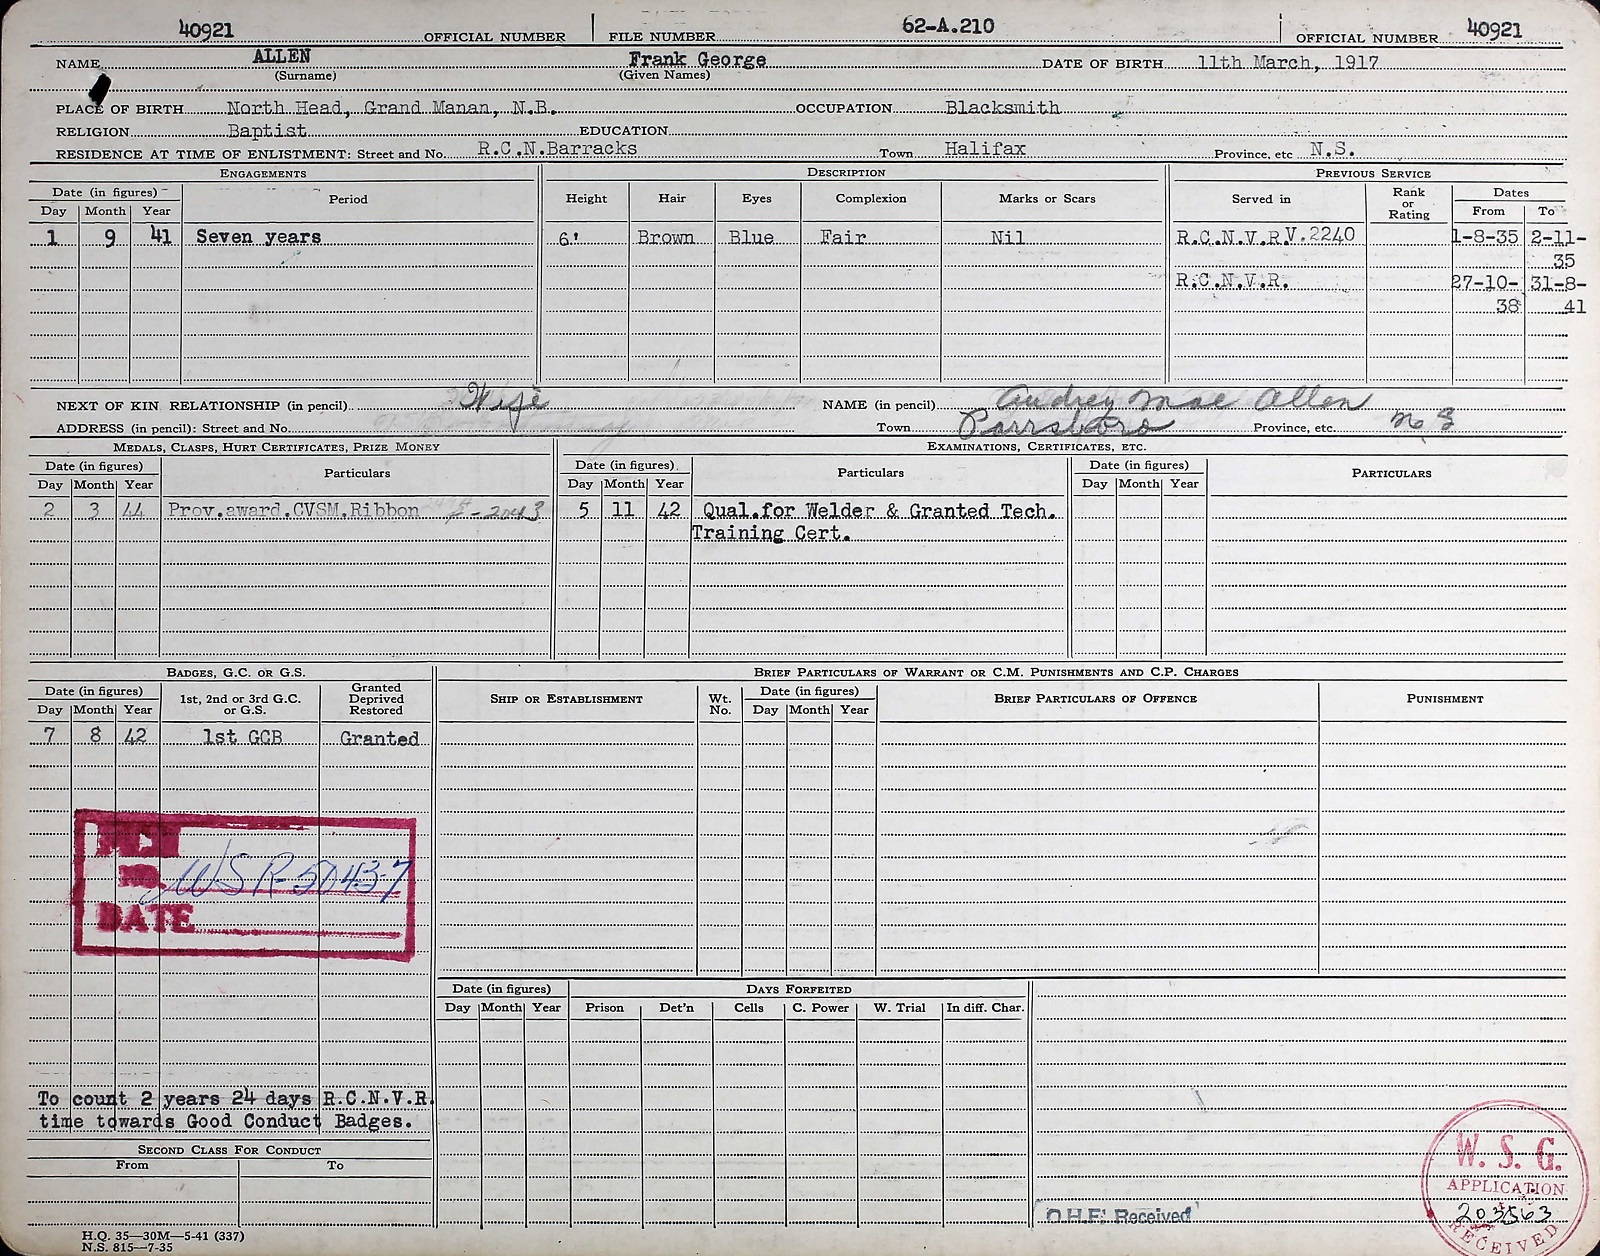 40921 OFFICIAL NUMBER FILE NUMBER 62-A.210 OFFICIAL NUMBER 40921
NAME ALLEN Frank George DATE OF BIRTH 11th March, 1917
(Surname) (Given Names)
PLACE OF BIRTH North Head, Grand Manan, N.B. OCCUPATION Blacksmith
RELIGION Baptist EDUCATION
RESIDENCE AT TIME OF ENLISTMENT: Street and No. R.C.N.Barracks Town Halifax Province, etc N.S.
ENGAGEMENTS DESCRIPTION PREVIOUS SERVICE
Date (in figures) Period Height Hair Eyes Complexion Marks or Scars Served in Rank or Rating Dates
Day Month Year From To
1 9 41 Seven years 6' Brown Blue Fair Nil R.C.N.V.R V.2240 1-8-35 2-11-35
R.C.N.V.R. 27-10-38 31-8-41
NEXT OF KIN RELATIONSHIP (in pencil) Wife NAME (in pencil) Audrey Mae Allen
ADDRESS (in pencil): Street and No. Town Parrsboro Province, etc. N S
MEDALS, CLASPS, HURT CERTIFICATES, PRIZE MONEY EXAMINATIONS, CERTIFICATES, ETC.
Date (in figures) Particulars Date (in figures) Particulars Date (in figures) PARTICULARS
Day Month Year Day Month Year Day Month Year
2 3 44 Prov.award.CVSM.Ribbon 5 11 42 Qual.for Welder & Granted Tech.
Training Cert.
BADGES, G.C. OR G.S. BRIEF PARTICULARS OF WARRANT OR C.M. PUNISHMENTS AND C.P. CHARGES
Date (in figures) 1st, 2nd or 3rd G.C. or G.S. Granted Deprived Restored SHIP OR ESTABLISHMENT Wt. No. Date (in figures) BRIEF PARTICULARS OF OFFENCE PUNISHMENT
Day Month Year Day Month Year
7 8 42 1st GCB Granted
NO. WSR-50437
DATE
Date (in figures) DAYS FORFEITED
Day Month Year Prison Det'n Cells C. Power W. Trial In diff. Char.
To count 2 years 24 days R.C.N.V.R.
time towards Good Conduct Badges.
SECOND CLASS FOR CONDUCT
From To
W. S. G.
APPLICATION
203563
RECEIVED
O.H.F. Received
H.Q. 35—30M—5-41 (337)
N.S. 815—7-35